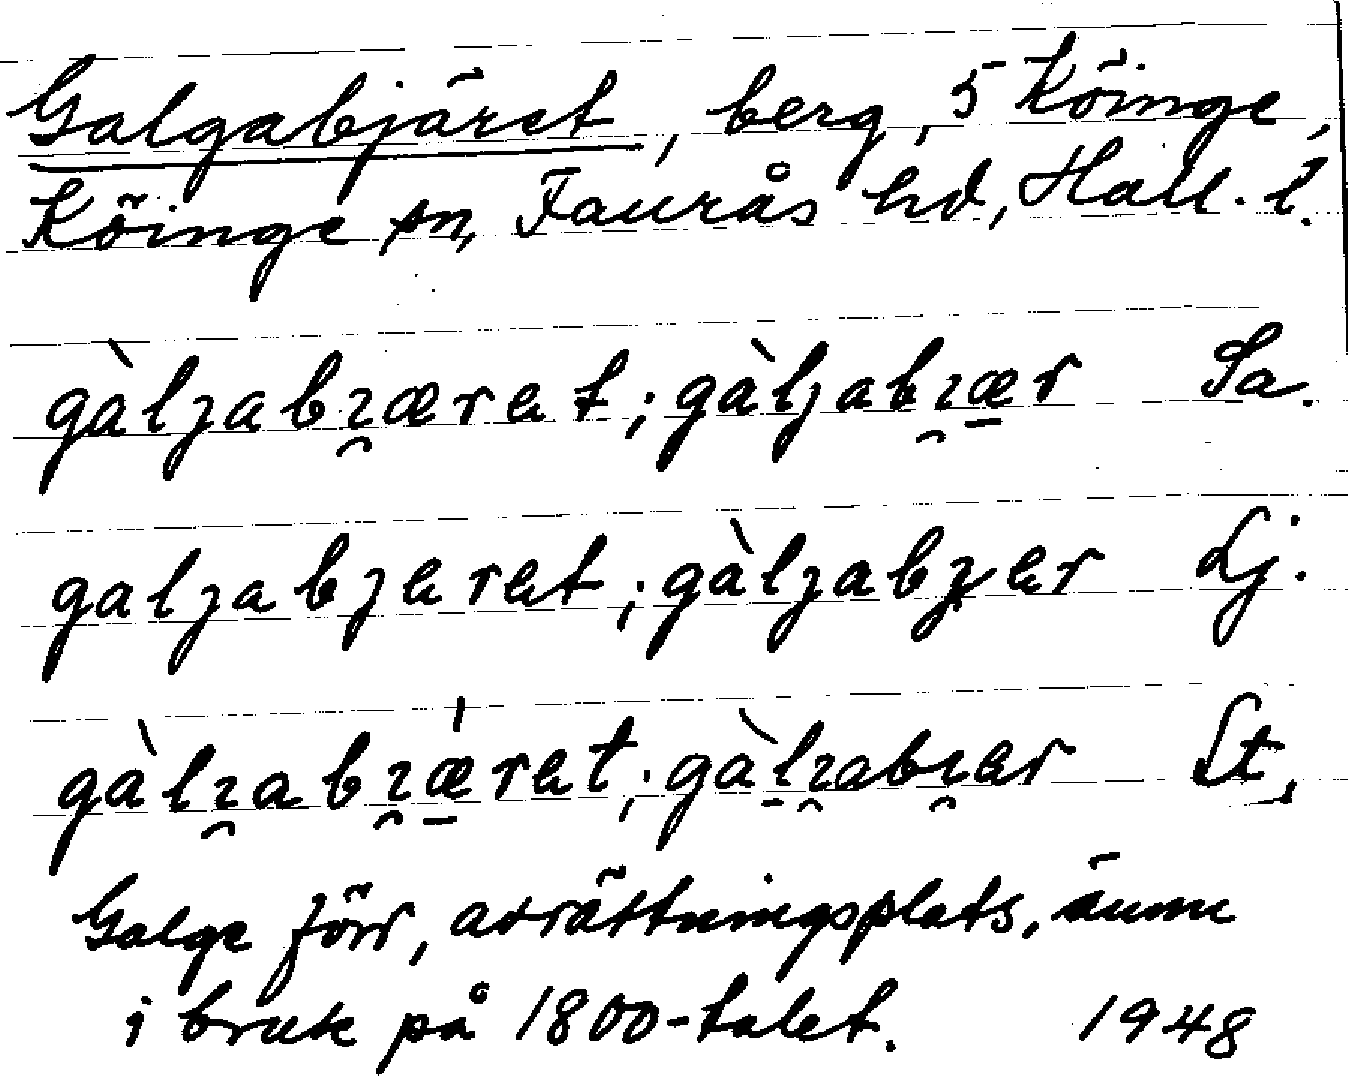 Galgabjäret, berg, 5 Köinge,
Köinge sn, Faurås hd, Hall. l.
gàlȷabı̯æret; gàlȷabı̯æ̱r Sa.
galȷabȷeret; gàlȷabȷer Lj.
gàlı̯abı̯ǽ̱ret; gàḻı̯abı̯er St.
Galge förr, avrättningsplats, ännu
i bruk på 1800-talet. 1948